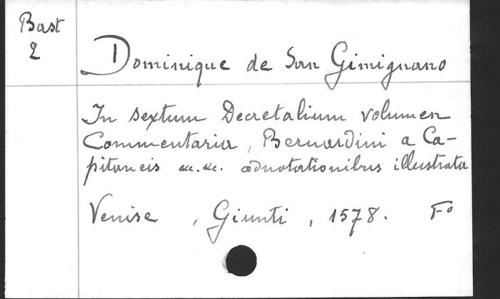 Bast
2
Dominique de San Gimignano
In sextum Decretalium volumen
Commentaria, Bernardini a Ca-
pitaneis &c. &c. adnotationibus illustrata
Venise , Giunti , 1578. Fo